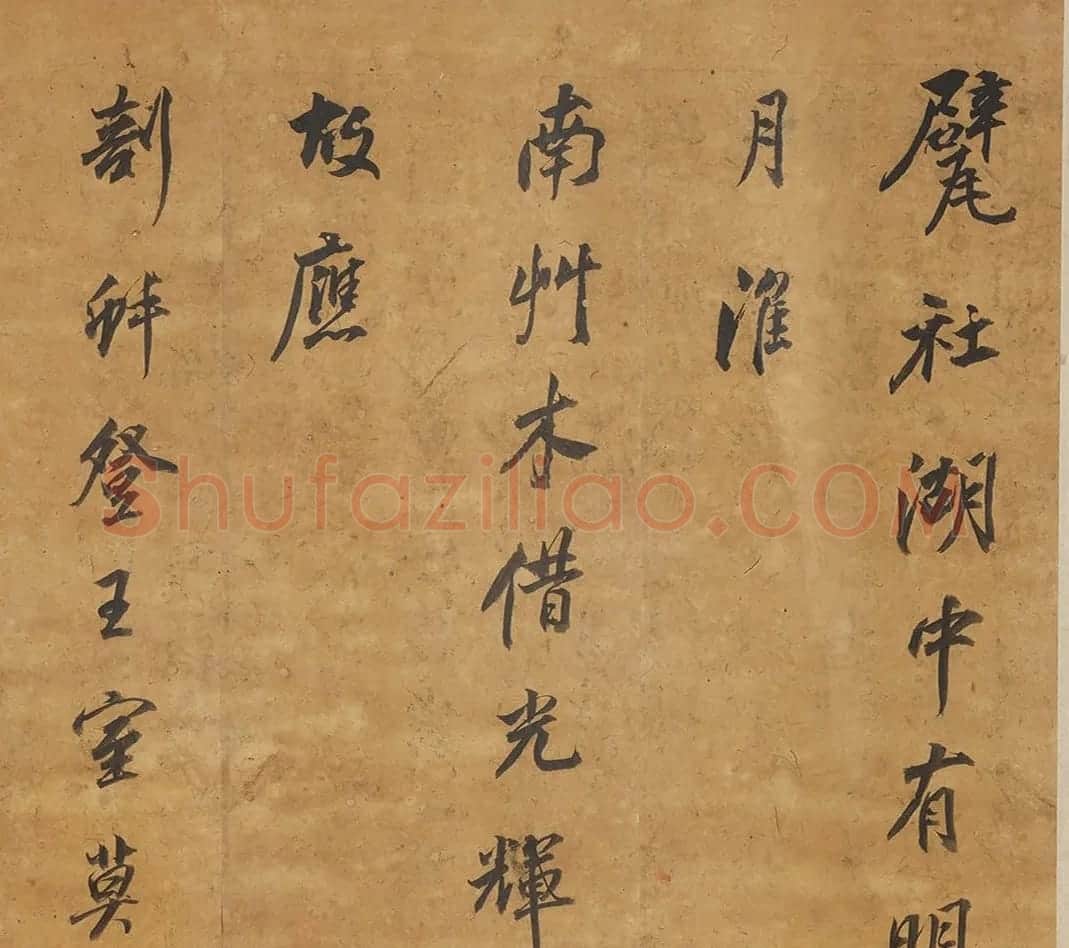 甓社湖中有明
月淮
南艸木借光輝
故應
剖蚌登王室莫
Shufaziliao.COM